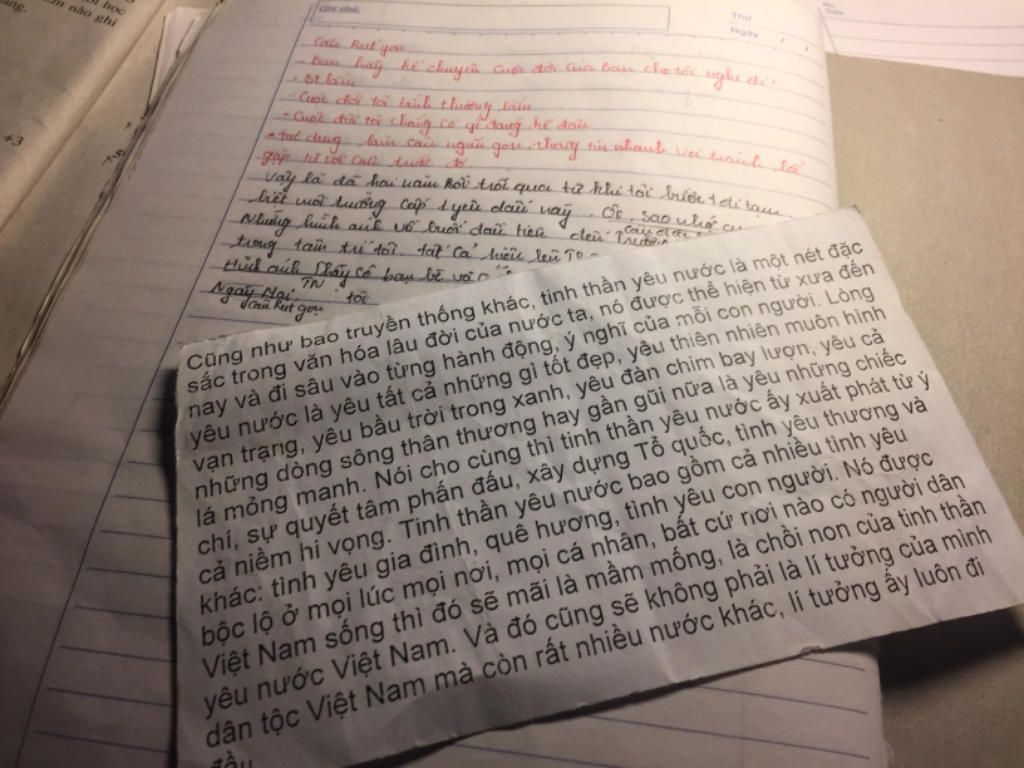 Ghi chú:
Thứ
Ngày / /
+3
Câu Rút gọn
- Bạn hãy kể chuyện cuộc đời của bạn cho tôi nghe đi!
- Cuộc đời tôi bình thường lắm
- Cuộc đời tôi chẳng có gì đáng kể đâu
tác dụng làm câu ngắn gọn, thông tin nhanh với tránh lặp
gặp từ với câu trước đó
Vậy là đã hai năm Rồi trôi qua từ khi tôi bước
biết môi trường cấp 1 yêu dấu này. Ôi, sao nhớ
Những hình ảnh về buổi đầu tiên đến Trường
trong tâm trí tôi. tất cả hiện lên
Hình ảnh Thầy cô bạn bè với
TN
Ngày Mai, tôi
câu Rút gọn
Cũng như bao truyền thống khác, tinh thần yêu nước là một nét đặc
sắc trong văn hóa lâu đời của nước ta, nó được thể hiện từ xưa đến
nay và đi sâu vào từng hành động, ý nghĩ của mỗi con người. Lòng
yêu nước là yêu tất cả những gì tốt đẹp, yêu thiên nhiên muôn hình
vạn trạng, yêu bầu trời trong xanh, yêu đàn chim bay lượn, yêu cả
những dòng sông thân thương hay gần gũi nữa là yêu những chiếc
lá mỏng manh. Nói cho cùng thì tinh thần yêu nước ấy xuất phát từ ý
chí, sự quyết tâm phấn đấu, xây dựng Tổ quốc, tình yêu thương và
cả niềm hi vọng. Tinh thần yêu nước bao gồm cả nhiều tình yêu
khác: tình yêu gia đình, quê hương, tình yêu con người. Nó được
bộc lộ ở mọi lúc mọi nơi, mọi cá nhân, bất cứ nơi nào có người dân
Việt Nam sống thì đó sẽ mãi là mầm mống, là chồi non của tinh thần
yêu nước Việt Nam. Và đó cũng sẽ không phải là lí tưởng của mình
dân tộc Việt Nam mà còn rất nhiều nước khác, lí tưởng ấy luôn đi
đầu